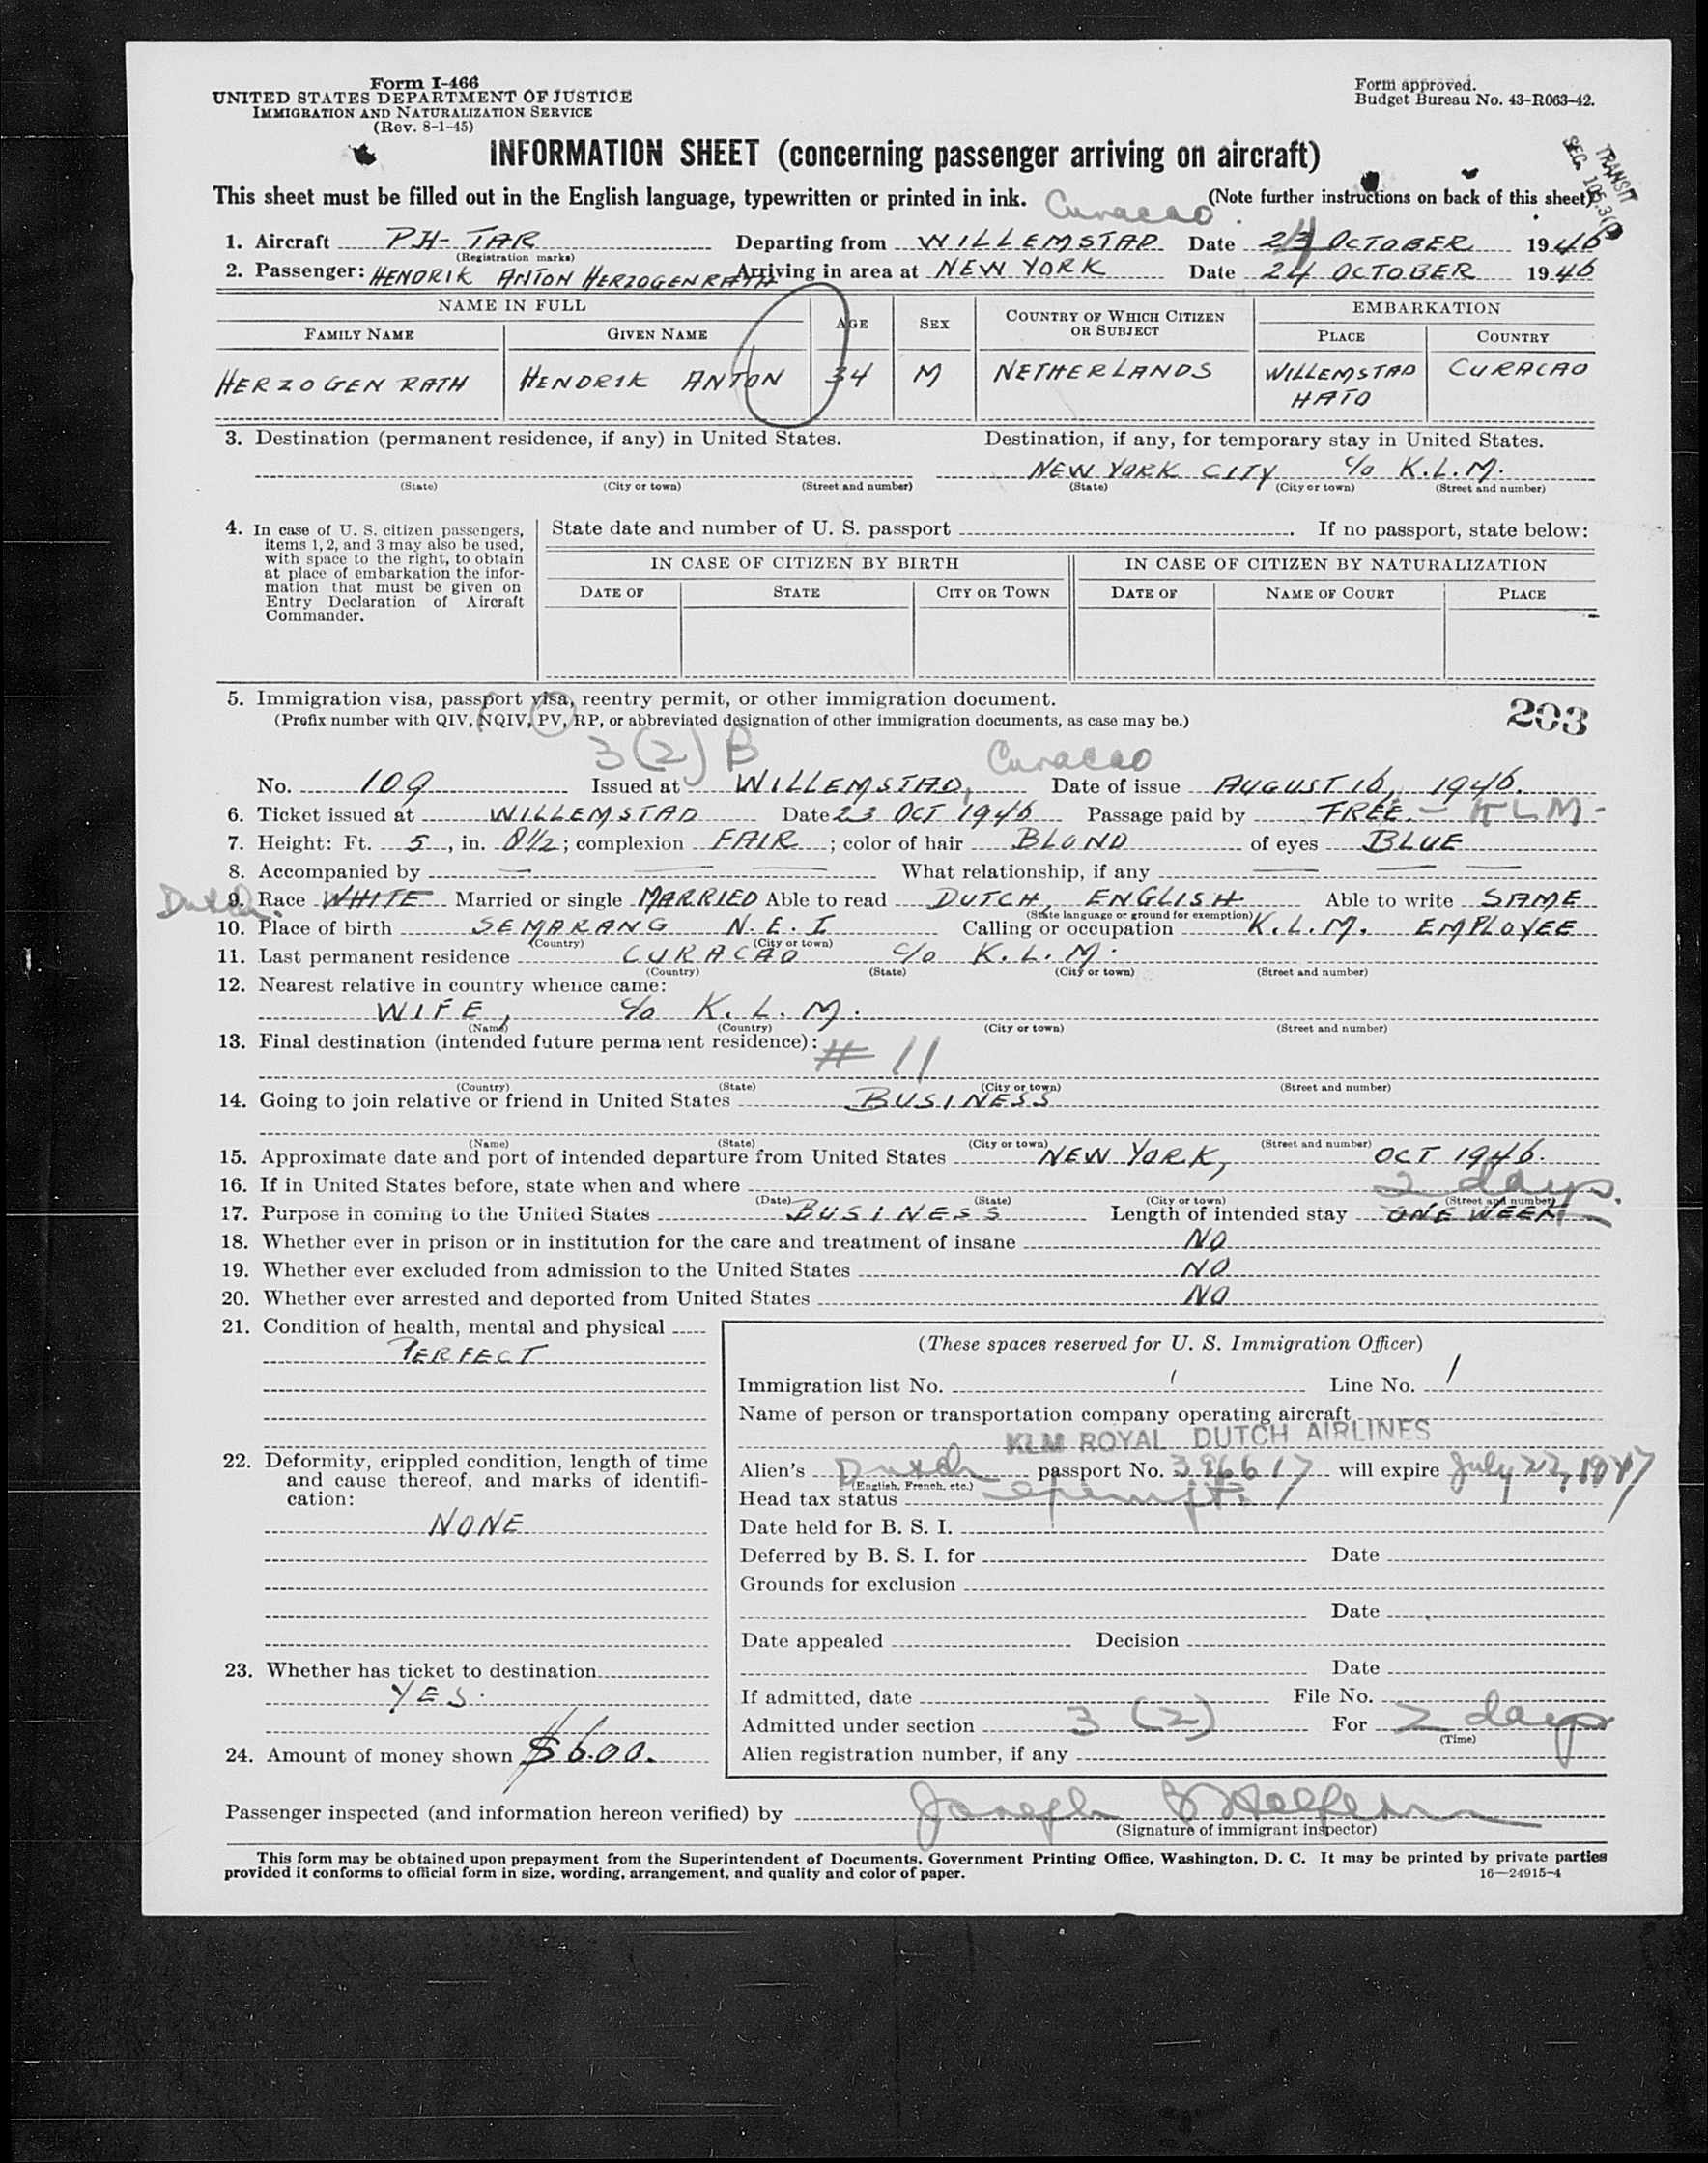 Form I-466
UNITED STATES DEPARTMENT OF JUSTICE
IMMIGRATION AND NATURALIZATION SERVICE
(Rev. 8-1-45)
Form approved.
Budget Bureau No. 43-R063-42.
INFORMATION SHEET (concerning passenger arriving on aircraft)
TRANSIT
SEC. 105.3(
This sheet must be filled out in the English language, typewritten or printed in ink. (Note further instructions on back of this sheet)
Curacao.
1. Aircraft PH-TAR Departing from WILLEMSTAD Date 24 OCTOBER 1946
(Registration marks)
2. Passenger: HENDRIK ANTON HERZOGENRATH Arriving in area at NEW YORK Date 24 OCTOBER 1946
NAME IN FULL AGE SEX COUNTRY OF WHICH CITIZEN OR SUBJECT EMBARKATION
FAMILY NAME GIVEN NAME PLACE COUNTRY
HERZOGENRATH HENDRIK ANTON 34 M NETHERLANDS WILLEMSTAD CURACAO
HATO
3. Destination (permanent residence, if any) in United States. Destination, if any, for temporary stay in United States.
NEW YORK CITY c/o K.L.M.
(State) (City or town) (Street and number) (State) (City or town) (Street and number)
4. In case of U. S. citizen passengers, items 1, 2, and 3 may also be used, with space to the right, to obtain at place of embarkation the information that must be given on Entry Declaration of Aircraft Commander.
State date and number of U. S. passport . If no passport, state below:
IN CASE OF CITIZEN BY BIRTH IN CASE OF CITIZEN BY NATURALIZATION
DATE OF STATE CITY OR TOWN DATE OF NAME OF COURT PLACE
5. Immigration visa, passport visa, reentry permit, or other immigration document.
(Prefix number with QIV, NQIV, PV, RP, or abbreviated designation of other immigration documents, as case may be.)
203
3(2) B Curacao
No. 109 Issued at WILLEMSTAD, Date of issue AUGUST 16, 1946.
6. Ticket issued at WILLEMSTAD Date 23 OCT 1946 Passage paid by FREE. - KLM -
7. Height: Ft. 5, in. 8 1/2; complexion FAIR; color of hair BLOND of eyes BLUE
8. Accompanied by — — What relationship, if any — —
Dutch.
9. Race WHITE Married or single MARRIED Able to read DUTCH, ENGLISH Able to write SAME
(State language or ground for exemption)
10. Place of birth SEMARANG N.E.I Calling or occupation K.L.M. EMPLOYEE
(Country) (City or town)
11. Last permanent residence CURACAO c/o K.L.M.
(Country) (State) (City or town) (Street and number)
12. Nearest relative in country whence came:
WIFE, c/o K.L.M.
(Name) (Country) (City or town) (Street and number)
13. Final destination (intended future permanent residence): # 11
(Country) (State) (City or town) (Street and number)
14. Going to join relative or friend in United States BUSINESS
(Name) (State) (City or town) (Street and number)
15. Approximate date and port of intended departure from United States NEW YORK, OCT 1946.
16. If in United States before, state when and where
(Date) (State) (City or town) (Street and number)
2 days.
17. Purpose in coming to the United States BUSINESS Length of intended stay ONE WEEK
18. Whether ever in prison or in institution for the care and treatment of insane NO
19. Whether ever excluded from admission to the United States NO
20. Whether ever arrested and deported from United States NO
21. Condition of health, mental and physical
PERFECT
22. Deformity, crippled condition, length of time and cause thereof, and marks of identification:
NONE
23. Whether has ticket to destination
YES.
24. Amount of money shown $6.00.
(These spaces reserved for U. S. Immigration Officer)
Immigration list No. 1 Line No. 1
Name of person or transportation company operating aircraft
KLM ROYAL DUTCH AIRLINES
Alien's Dutch passport No. 396617 will expire July 27, 1947
(English, French, etc.)
Head tax status exempt.
Date held for B. S. I.
Deferred by B. S. I. for Date
Grounds for exclusion
Date
Date appealed Decision
Date
If admitted, date File No.
Admitted under section 3 (2) For 2 days
(Time)
Alien registration number, if any
Passenger inspected (and information hereon verified) by Joseph
(Signature of immigrant inspector)
This form may be obtained upon prepayment from the Superintendent of Documents, Government Printing Office, Washington, D. C. It may be printed by private parties
provided it conforms to official form in size, wording, arrangement, and quality and color of paper. 16—24915-4